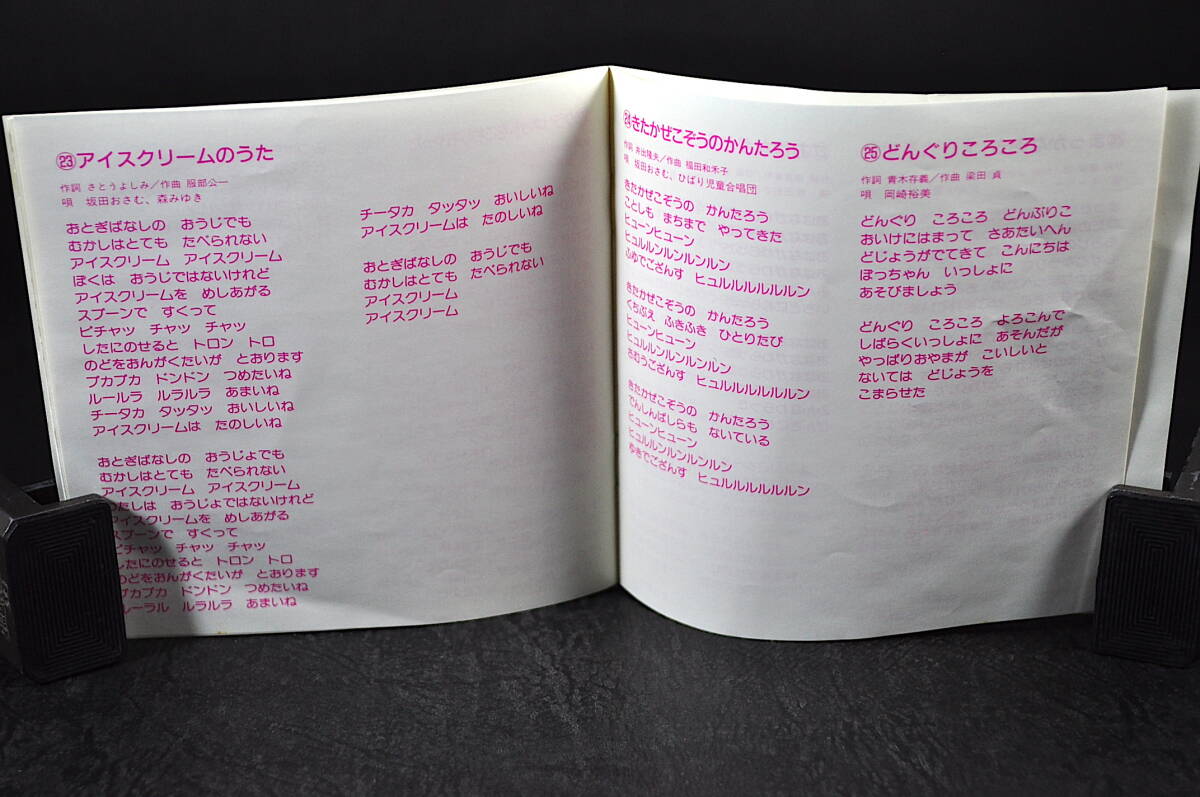 ㉓アイスクリームのうた
作詞 さとうよしみ／作曲 服部公一
唄 坂田おさむ、森みゆき
おとぎばなしの おうじでも
むかしはとても たべられない
アイスクリーム アイスクリーム
ぼくは おうじではないけれど
アイスクリームを めしあがる
スプーンで すくって
ピチャッ チャッ チャッ
したにのせると トロン トロ
のどをおんがくたいが とおります
プカプカ ドンドン つめたいね
ルールラ ルラルラ あまいね
チータカ タッタッ おいしいね
アイスクリームは たのしいね
おとぎばなしの おうじょでも
むかしはとても たべられない
アイスクリーム アイスクリーム
わたしは おうじょではないけれど
アイスクリームを めしあがる
スプーンで すくって
ピチャッ チャッ チャッ
したにのせると トロン トロ
のどをおんがくたいが とおります
プカプカ ドンドン つめたいね
ルーラル ルラルラ あまいね
チータカ タッタッ おいしいね
アイスクリームは たのしいね
おとぎばなしの おうじでも
むかしはとても たべられない
アイスクリーム
アイスクリーム
㉔きたかぜこぞうのかんたろう
作詞 井出隆夫／作曲 福田和禾子
唄 坂田おさむ、ひばり児童合唱団
きたかぜこぞうの かんたろう
ことしも まちまで やってきた
ヒューンヒューン
ヒュルルンルンルンルン
ふゆでござんす ヒュルルルルルルン
きたかぜこぞうの かんたろう
くちぶえ ふきふき ひとりたび
ヒューンヒューン
ヒュルルンルンルンルン
さむうござんす ヒュルルルルルルン
きたかぜこぞうの かんたろう
でんしんばしらも ないている
ヒューンヒューン
ヒュルルンルンルンルン
ゆきでござんす ヒュルルルルルルン
㉕どんぐりころころ
作詞 青木存義／作曲 梁田 貞
唄 岡崎裕美
どんぐり ころころ どんぶりこ
おいけにはまって さあたいへん
どじょうがでてきて こんにちは
ぼっちゃん いっしょに
あそびましょう
どんぐり ころころ よろこんで
しばらくいっしょに あそんだが
やっぱりおやまが こいしいと
ないては どじょうを
こまらせた